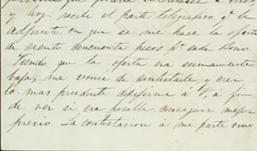 y hoy, recibo el parte telegrafico q.e le
adjunto en que se me hace la oferta
de ciento cincuenta pesos p.r cada
Viendo que la oferta era sumamente
baja, me vencé de contestarle y creí
lo mas prudente dirijirme á V. á fin
de ver si era posible conseguir mejor
precio. La contestacion á mi parte